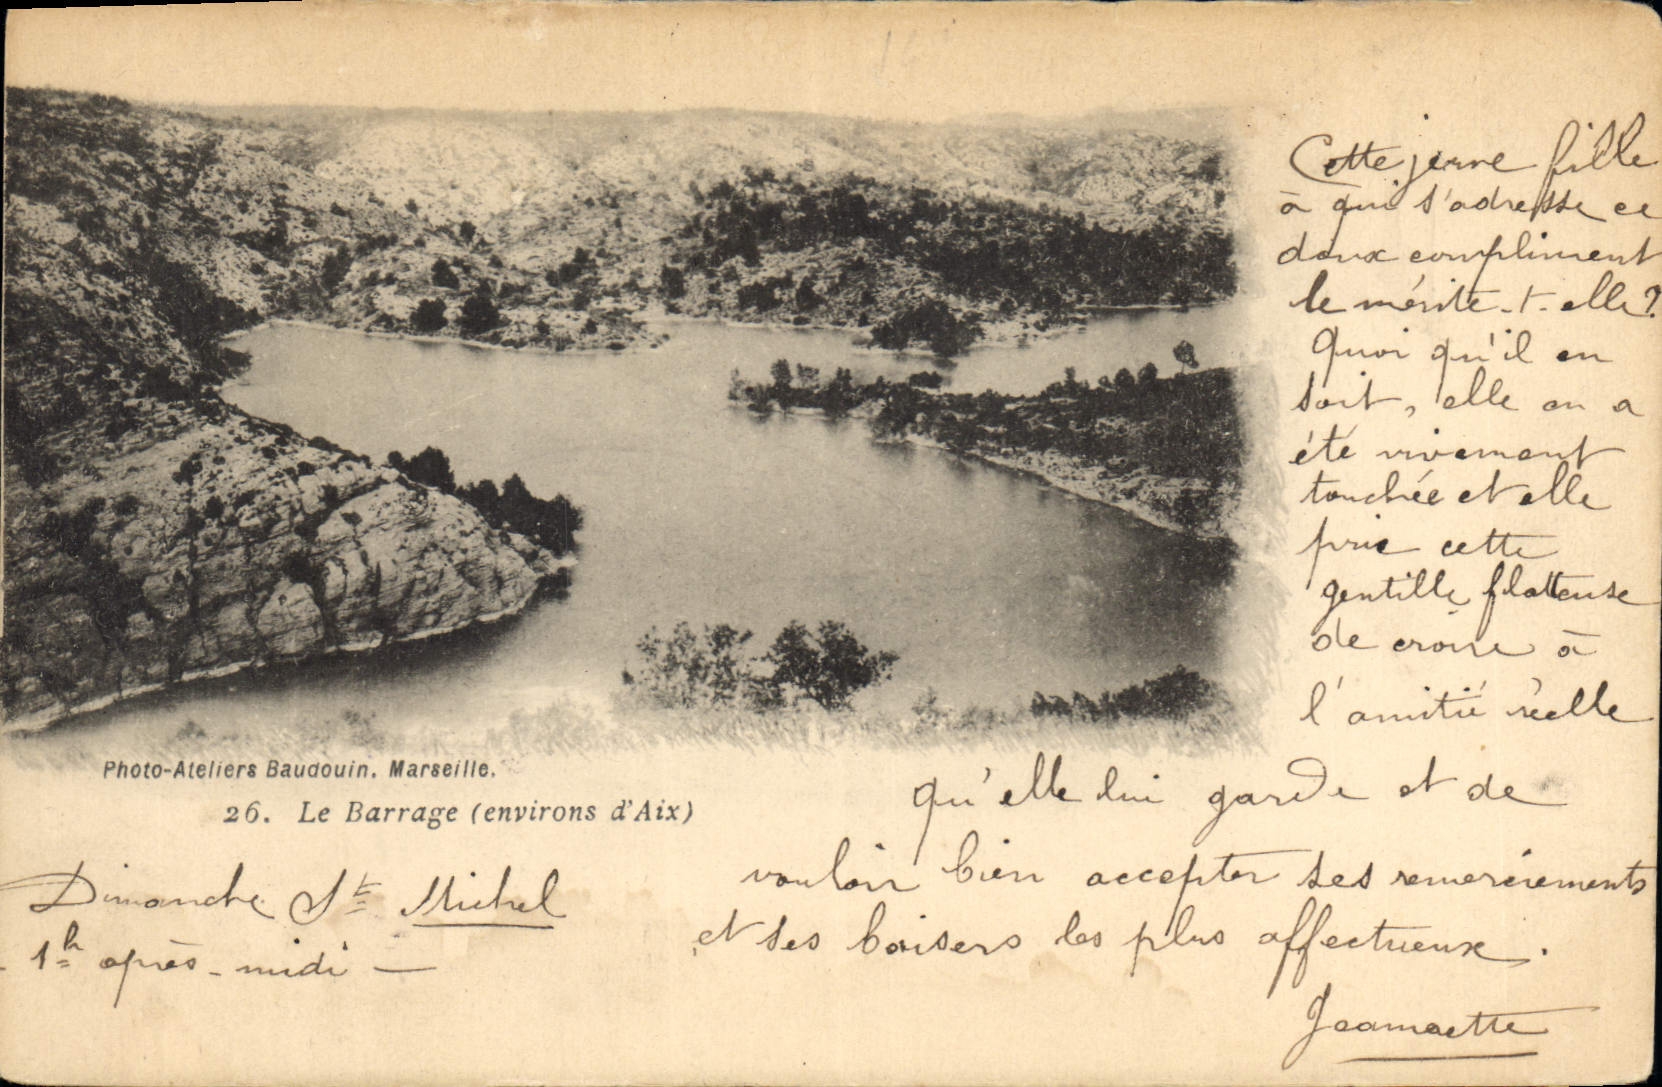 Cette jeune fille
à qui s'adresse ce
doux compliment
le mérite-t-elle?
Quoi qu'il en
soit, elle en a
été vivement
touchée et elle
prie cette
gentille flatteuse
de croire à
l'amitié réelle
qu'elle lui garde et de
vouloir bien accepter ses remerciements
et ses baisers les plus affectueux.
Jeannette
Photo-Ateliers Baudouin. Marseille.
26. Le Barrage (environs d'Aix)
Dimanche St Michel
1h après-midi —